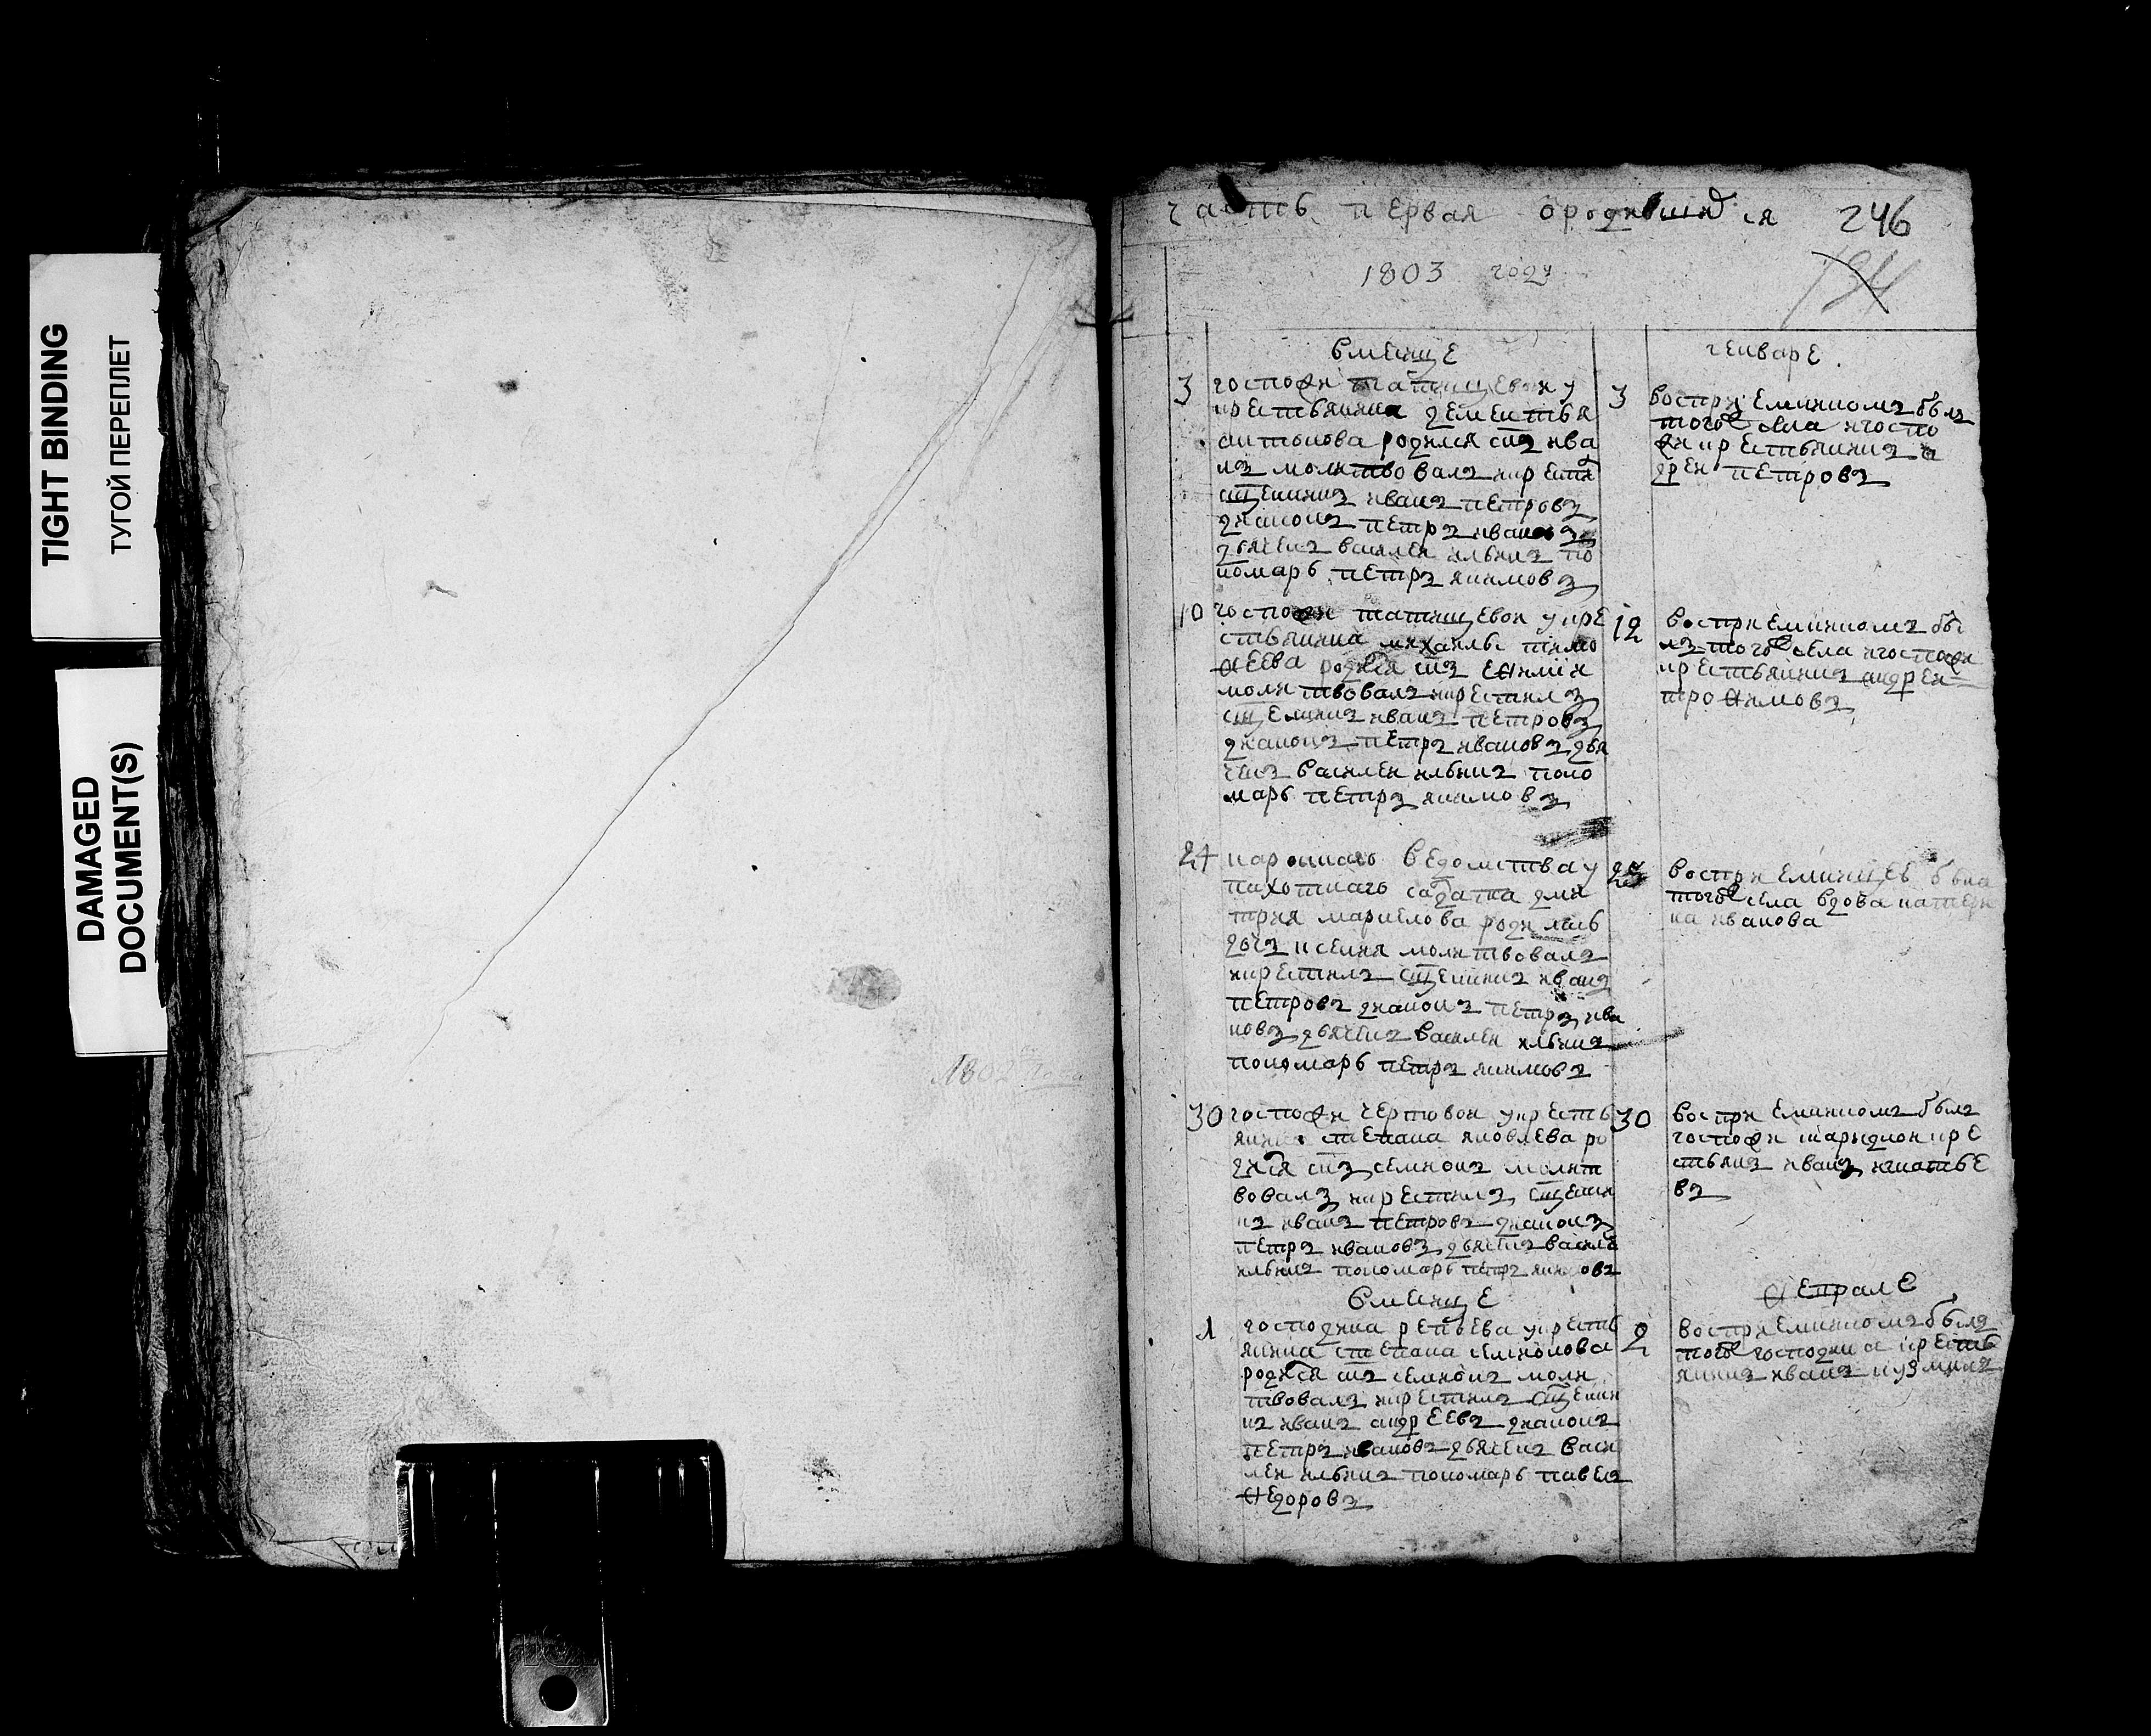 TIGHT BINDING
ТУГОЙ ПЕРЕПЛЕТ
DAMAGED
DOCUMENT(S)
1802 года
часть первая о родившихся 246
184
1803 году
в месяце
генваре
3 госпожи татищевои у
крестьянина дементья
антонова родился снъ ива
нъ молитвовалъ и крести
сщенникъ иванъ петровъ
диаконъ петръ ивановъ
дьячекъ василеи ильинъ по
номарь петръ якимовъ
3 восприемникомъ былъ
тогож села и госпо
жи крестьянинъ а
дреи петровъ
10 госпожи татищевои у кре
стьянина михаилы тимо
ѳеева родился снъ еѳимiи
молитвовалъ и крестилъ
сщенникъ иванъ петровъ
диаконъ петръ ивановъ дья
чекъ василеи ильинъ поно
марь петръ якимовъ
12 восприемникомъ бы
лъ тогож села и госпожи
крестьянинъ андреи
троѳимовъ
24 ведомства у
пахотнаго салдата дми
трия маркелова родилась
дочь ксения молитвовалъ
и крестилъ сщенникъ иванъ
петровъ диаконъ петръ ива
новъ дьячекъ василеи ильинъ
пономарь петръ якимовъ
25 восприемницеь была
тогож села вдова катери
на иванова
30 госпожи чертовои у кресть
янина степана яковлева ро
дился снъ семионъ молит
вовалъ и крестилъ сщенни
къ иванъ петровъ диаконъ
петръ ивановъ дьячекъ василе
ильинъ пономарь петръ якимовъ
30 восприемникомъ былъ
госпожи кре
стьянъ иванъ игнатье
въ
в месяце
ѳепрале
1 господина репьева у кресть
янина степана семионова
родился снъ семионъ моли
твовалъ и крестилъ сщенни
къ иванъ андреевъ диаконъ
петръ ивановъ дьячекъ васи
леи ильинъ пономарь павелъ
ѳедоровъ
2 восприемникомъ былъ
тогож господина кресть
янинъ иванъ кузминъ